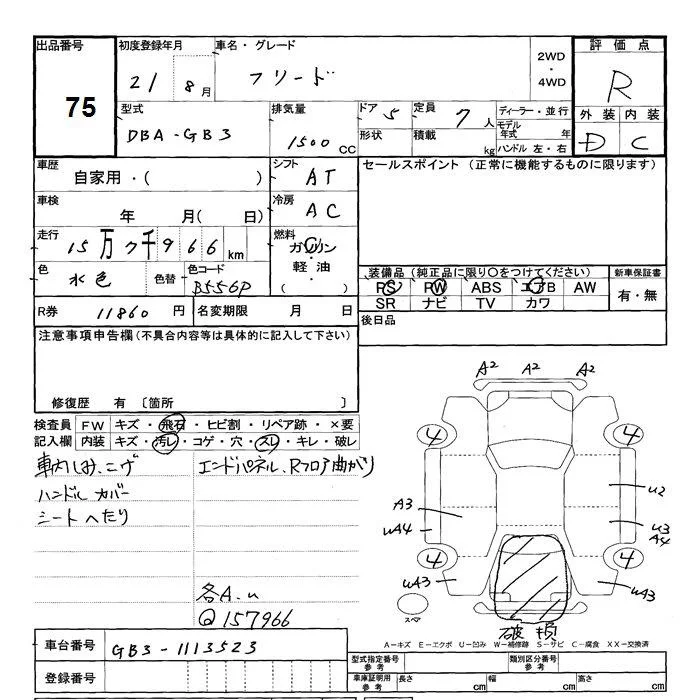 出品番号 75
初度登録年月 21 8月
車名・グレード フリード
2WD・4WD
評価点 R
外装 D 内装 C
型式 DBA-GB3
排気量 1500cc
ドア 5
定員 7人
形状
積載 kg
ディーラー・並行
モデル年式 年
ハンドル 左・右
車歴 自家用・( )
シフト AT
セールスポイント (正常に機能するものに限ります)
車検 年 月( 日)
冷房 AC
走行 15万7千966km
燃料 ガソリン・軽油・( )
色 水色
色替
色コード B556P
装備品(純正品に限り○をつけてください)
PS PW ABS エアB AW
SR ナビ TV カワ
新車保証書 有・無
R券 11860円
名変期限 月 日
後日品
注意事項申告欄(不具合内容等は具体的に記入して下さい)
修復歴 有 〔箇所 〕
検査員記入欄
FW キズ・飛石・ヒビ割・リペア跡・×要
内装 キズ・汚レ・コゲ・穴・スレ・キレ・破レ
車内しみ、こげ
ハンドルカバー
シートへたり
エンドパネル、Rフロア曲がり
各A.u
@157966
A2 A2 A2
4 4
U2
A3
UA4
U3
A4
4 4
UA3 UA3
スペア
破損
A-キズ E-エクボ U-凹み W-補修跡 S-サビ C-腐食 XX-交換済
車台番号 GB3-1113523
登録番号
型式指定番号 参考
類別区分番号 参考
車庫証明用 参考 長さ cm 幅 cm 高さ cm